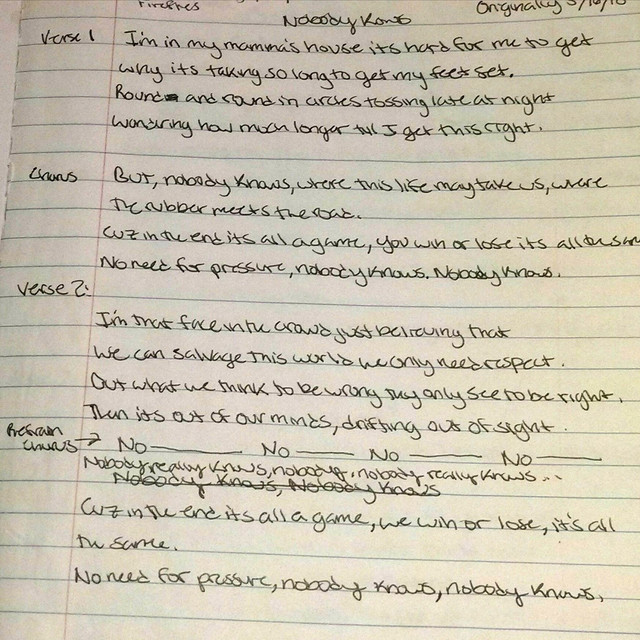 Firefires
Originally 3/16/10
Nobody Kows
Verse 1 I'm in my mamma's house its hard for me to get
why its taking so long to get my feet set.
Round and round in circles tossing late at night
wondring how much longer till I get this right.
Chorus But, nobody knows, where this life may take us, where
the rubber meets the road.
Cuz in the end its all a game, you win or lose its all the sam
No need for pressure, nobody knows. Nobody knows.
Verse 2:
I'm that face in the crowd just believing that
We can salvage this world we only need respect.
But what we think to be wrong they only see to be right.
Then its out of our minds, drifting out of sight.
Chorus → No No No No
Nobody really knows, nobody, nobody really knows...
Nobody Knows, Nobody Knows
Cuz in the end its all a game, we win or lose, it's all
the same.
No need for pressure, nobody knows, nobody knows,